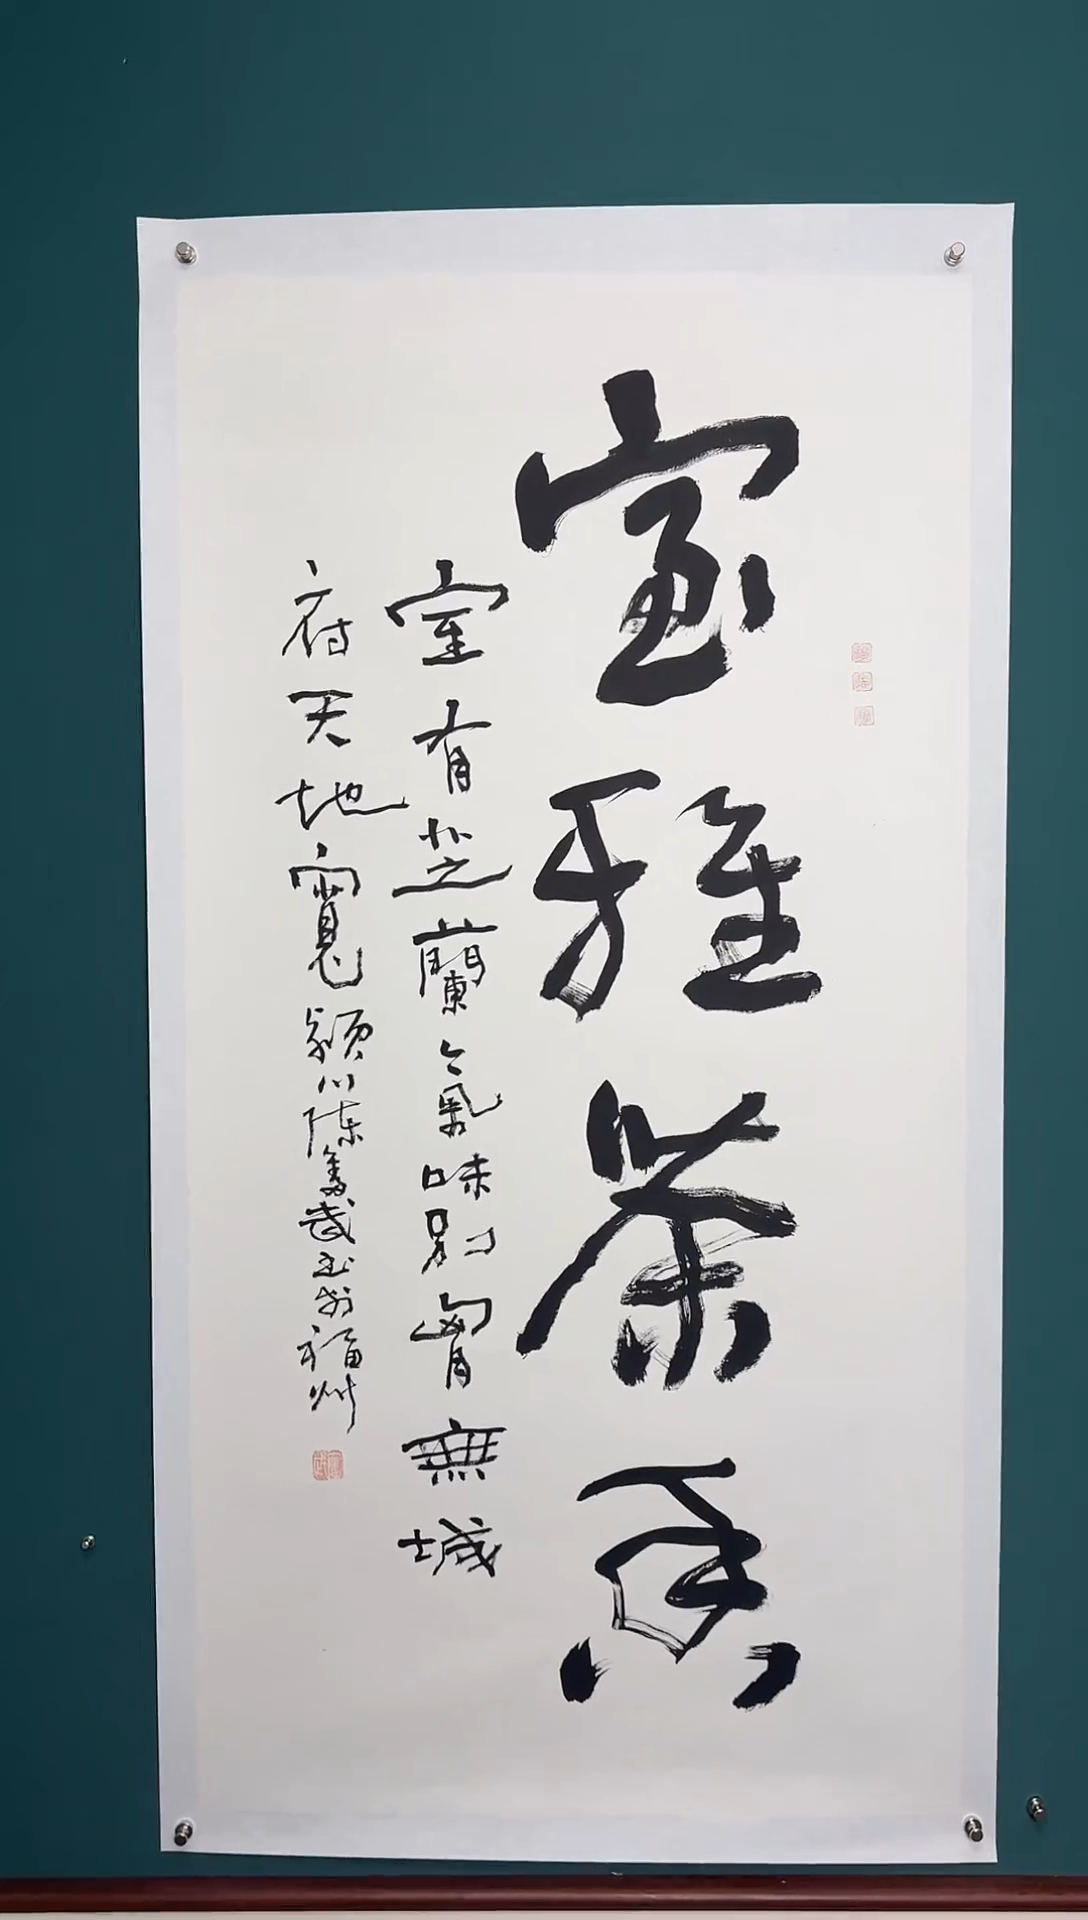 室雅茶香
室有芝蘭氣味別胷無城
府天地寬潁川陳奮武书於福州